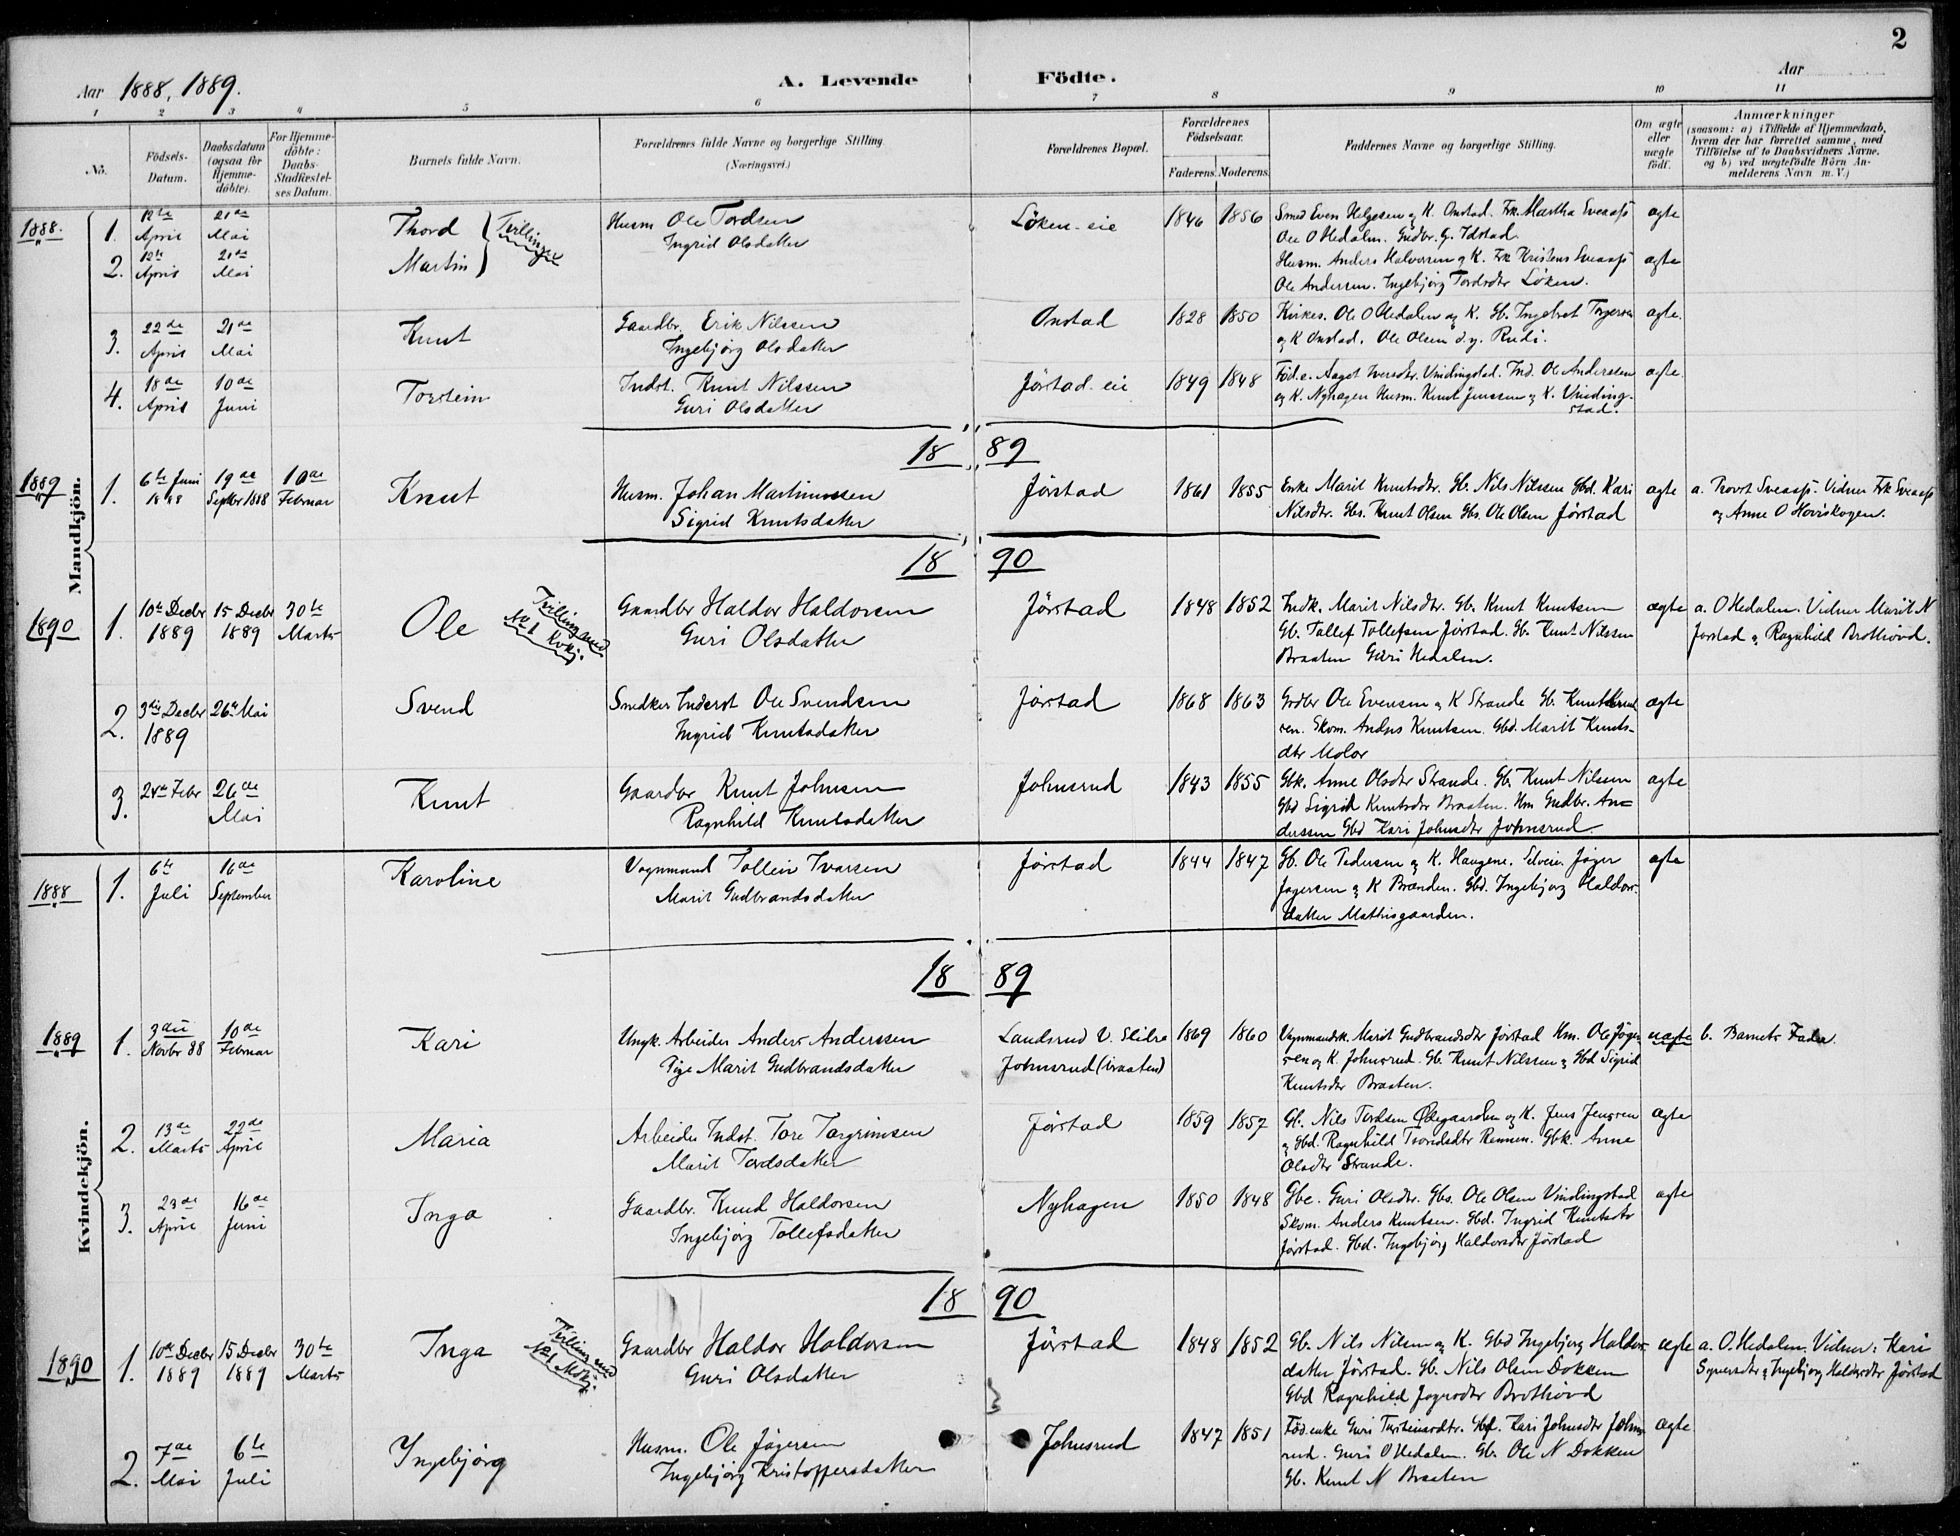 2
Aar 1888, 1889.
A. Levende Födte.
Aar
1 2 3 4 5 6 7 8 9 10 11
No.
Födsels-Datum.
Daabsdatum (ogsaa for Hjemme-döbte).
For Hjemme-döbte: Daabs-Stadfæstel-ses Datum.
Barnets fulde Navn.
Forældrenes fulde Navne og borgerlige Stilling (Næringsvei.)
Forældrenes Bopæl.
Forældrenes Födselsaar.
Faderens. Moderens.
Faddernes Navne og borgerlige Stilling.
Om ægte eller uægte födt.
Anmærkninger
(saasom: a) i Tilfælde af Hjemmedaab,
hvem der har forrettet samme, med
Tilföielse af to Daabsvidners Navne.
og b) ved uægtefödte Börn An-
melderens Navn m. V.)
Mandkjön.
1888.
1. 12te April 21de Mai Thord Tvillinger Husm Ole Tordsen Ingrid Olsdatter Løken eie 1846 1856 Smed Even Helgesen og K. Onstad. Frk. Martha Sveaass Ole O Hedalen. Gudbr. G. Idstad. ægte
2. 12te April 21de Mai Martin Husm. Anders Halvorsen og K. Frk Kristens Sveaass Ole Andersen. Ingebjørg Tordsdtr Løken. ægte
3. 22de April 21de Mai Knut Gaardbr. Erik Nilssen Ingebjørg Olsdatter Onstad 1828 1850 Kirkes. Ole O Hedalen og K. Gb. Ingebret og K Onstad. Ole Olsen d.y. Rudi. ægte.
4. 18de April 10de Juni Torstein Indst. Knut Nilssen Guri Olsdatter Jørstad eie 1849 1848 Fød.e. Aaget Iversdtr. Vindingstad. Ind. Ole Anderssen og K. Nyhagen Husm. Knut Jenssen og K. Vinding-stad. ægte.
18 89
1889
1. 6te Juni 1888 19de Septbr 1888 10de Februar Knut Husm. Johan Martinussen Sigrid Knutsdatter Jørstad 1861 1855 Enke Marit Knutsdtr. Gb. Nils Nilssen Gbd. Kari Nilsdtr. Gbs. Knut Olsen Gbs. Ole Olsen Jørstad ægte a. Provst Sveaass. Vidner Frk Sveaass og Anne O Hoviskogen.
18 90
1890
1. 10de Decbr 1889 15 Decbr 1889 30te Marts Ole Tvilling med No 1 Kvkj. Gaardbr Haldor Haldorsen Guri Olsdatter Jørstad 1848 1852 Indk. Marit Nilsdtr. Gb. Knut Knutsen Gb. Tollef Tollefsen Jørstad. Gb. Knut Nilssen Braaten Guri Hedalen. ægte a. O Hedalen. Vidner Marit N Jørstad og Ragnhild Brothovd.
2. 3die Decbr 1889 26de Mai Svend Snedker Inderst Ole Svendsen Ingrid Knutsdatter Jørstad 1868 1863 Grdbr Ole Evensen og K Strande Gb. Knut Knud-sen. Skom. Anders Knutsen. Gbd. Marit Knuts-dtr Moløe ægte
3. 24de Febr 26de Mai Knut Gaardbr Knut Johnsen Ragnhild Knutsdatter Johnsrud 1843 1855 Gbk. Anne Olsdtr Strande. Gb. Knut Nilssen Gbd Sigrid Knutsdtr Braaten. Hm Gudbr. An-derssen Gbd Kari Johnsdtr Johnsrud ægte
Kvindekjön.
1888
1. 6te Juli 16de September Karoline Vognmand Tollein Ivarsen Marit Gudbrandsdatter Jørstad 1844 1847 Gb. Ole Pedersen og K. Haugene. Selveier Jøger Jøgersen og K Brænden. Gbd. Ingebjørg Haldors-datter Mathisgaarden. ægte
18 89
1889
1. 3die Novbr 88 10de Februar Kari Ungk. Arbeider Anders Anderssen Pige Marit Gudbrandsdatter Landsrud V. Slidre Johnsrud (braaten) 1869 1860 Vognmandsk. Marit Gudbrandsdtr Jørstad Hm. Ole Jøger-sen og K. Johnsrud. Gb. Knut Nilssen og Gbd Sigrid Knutsdtr Braaten. uægte b. Barnets Fader.
2. 13de Marts 22de April Maria Arbeider Indst. Tore Torgrimsen Marit Tordsdatter Jørstad 1859 1857 Gb. Nils Tordsen Ødegaarden og K. Jens Jensen og Gbd. Ragnhild Rennen. Gbk. Anne Olsdtr Strande. ægte
3. 23de April 16de Juni Inga Gaardbr. Knud Haldorsen Ingebjørg Tollefsdatter Nyhagen 1850 1848 Gbe. Guri Olsdtr. Gbs. Ole Olsen Vindingstad Skom. Anders Knutsen. Gbd. Ingrid Knutsdtr Jørstad. Gbd. Ingebjørg Haldorsdtr Jørstad ægte
18 90
1890
1. 10de Decbr 1889 15 Decbr 1889 30te Marts Inga Tvilling med No 1 Mkj. Gaardbr Haldor Haldorsen Guri Olsdatter Jørstad 1848 1852 Gb. Nils Nilsen og K. Gbd Ingebjørg Haldors-datter Jørstad. Gb. Nils Olsen Dokken Gbd Ragnhild Jøgersdtr Brothovd ægte a. O. Hedalen. Vidner: Kari Syversdtr og Ingebjørg Haldorsdtr Jørstad
2. 7de Mai 6te Juli Ingebjørg Husm. Ole Jøgersen Ingebjørg Kristoffersdatter Johnsrud 1847 1851 Fød.enke Guri Torsteinsdtr. Gbd. Kari Johnsdtr Johns-rud. Guri O Hedalen. Gb. Ole N Dokken Gb. Knut N Braaten ægte